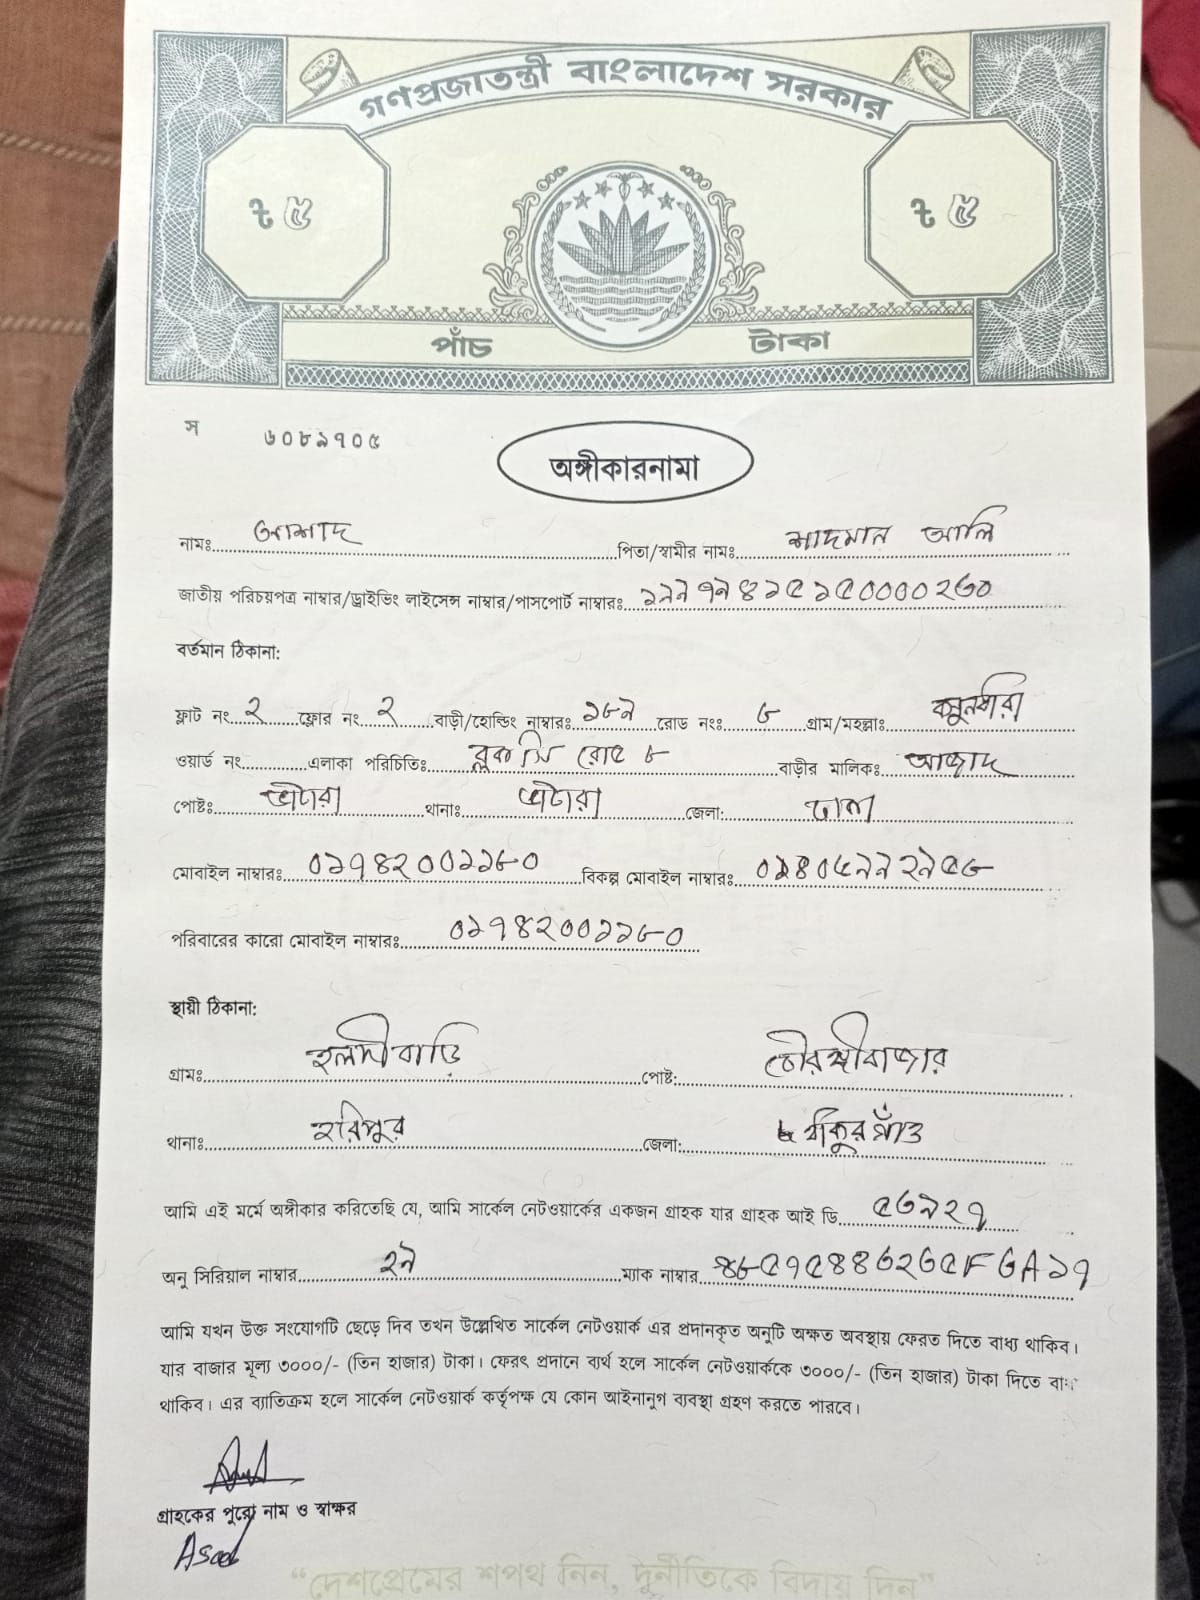 গণপ্রজাতন্ত্রী বাংলাদেশ সরকার
৳ ৫ ৳ ৫
পাঁচ টাকা
স ৬০৮৯৭০৫
অঙ্গীকারনামা
নামঃ আশাদ পিতা/স্বামীর নামঃ শাদমান আলি
জাতীয় পরিচয়পত্র নাম্বার/ড্রাইভিং লাইসেন্স নাম্বার/পাসপোর্ট নাম্বারঃ ১৯৯৭৯৪১৫১৫০০০০২৬০
বর্তমান ঠিকানা:
ফ্লাট নং ২ ফ্লোর নং ২ বাড়ী/হোল্ডিং নাম্বারঃ ১৮৯ রোড নংঃ ৮ গ্রাম/মহল্লাঃ বসুনধারা
ওয়ার্ড নং এলাকা পরিচিতিঃ ব্লক সি রোড ৮ বাড়ীর মালিকঃ আজাদ
পোষ্টঃ ভাটারা থানাঃ ভাটারা জেলা: ঢাকা
মোবাইল নাম্বারঃ ০১৭৪২০০১১৮০ বিকল্প মোবাইল নাম্বারঃ ০১৪০৫৯৯২৯৫৮
পরিবারের কারো মোবাইল নাম্বারঃ ০১৭৪২০০১১৮০
স্থায়ী ঠিকানা:
গ্রামঃ হলদীবাড়ি পোষ্ট: চৌরঙ্গীবাজার
থানাঃ হরিপুর জেলা: ঠাকুরগাঁও
আমি এই মর্মে অঙ্গীকার করিতেছি যে, আমি সার্কেল নেটওয়ার্কের একজন গ্রাহক যার গ্রাহক আই ডি ৫৬৯২৭
অনু সিরিয়াল নাম্বার ২৯ ম্যাক নাম্বার ৪৮৫৭৫৪৪৬২৬৫F৬A১৭
আমি যখন উক্ত সংযোগটি ছেড়ে দিব তখন উল্লেখিত সার্কেল নেটওয়ার্ক এর প্রদানকৃত অনুটি অক্ষত অবস্থায় ফেরত দিতে বাধ্য থাকিব।
যার বাজার মূল্য ৩০০০/- (তিন হাজার) টাকা। ফেরৎ প্রদানে ব্যর্থ হলে সার্কেল নেটওয়ার্ককে ৩০০০/- (তিন হাজার) টাকা দিতে
থাকিব। এর ব্যাতিক্রম হলে সার্কেল নেটওয়ার্ক কর্তৃপক্ষ যে কোন আইনানুগ ব্যবস্থা গ্রহণ করতে পারবে।
গ্রাহকের পুরো নাম ও স্বাক্ষর
Asad
“দেশপ্রেমের শপথ নিন, দুর্নীতিকে বিদায় দিন”